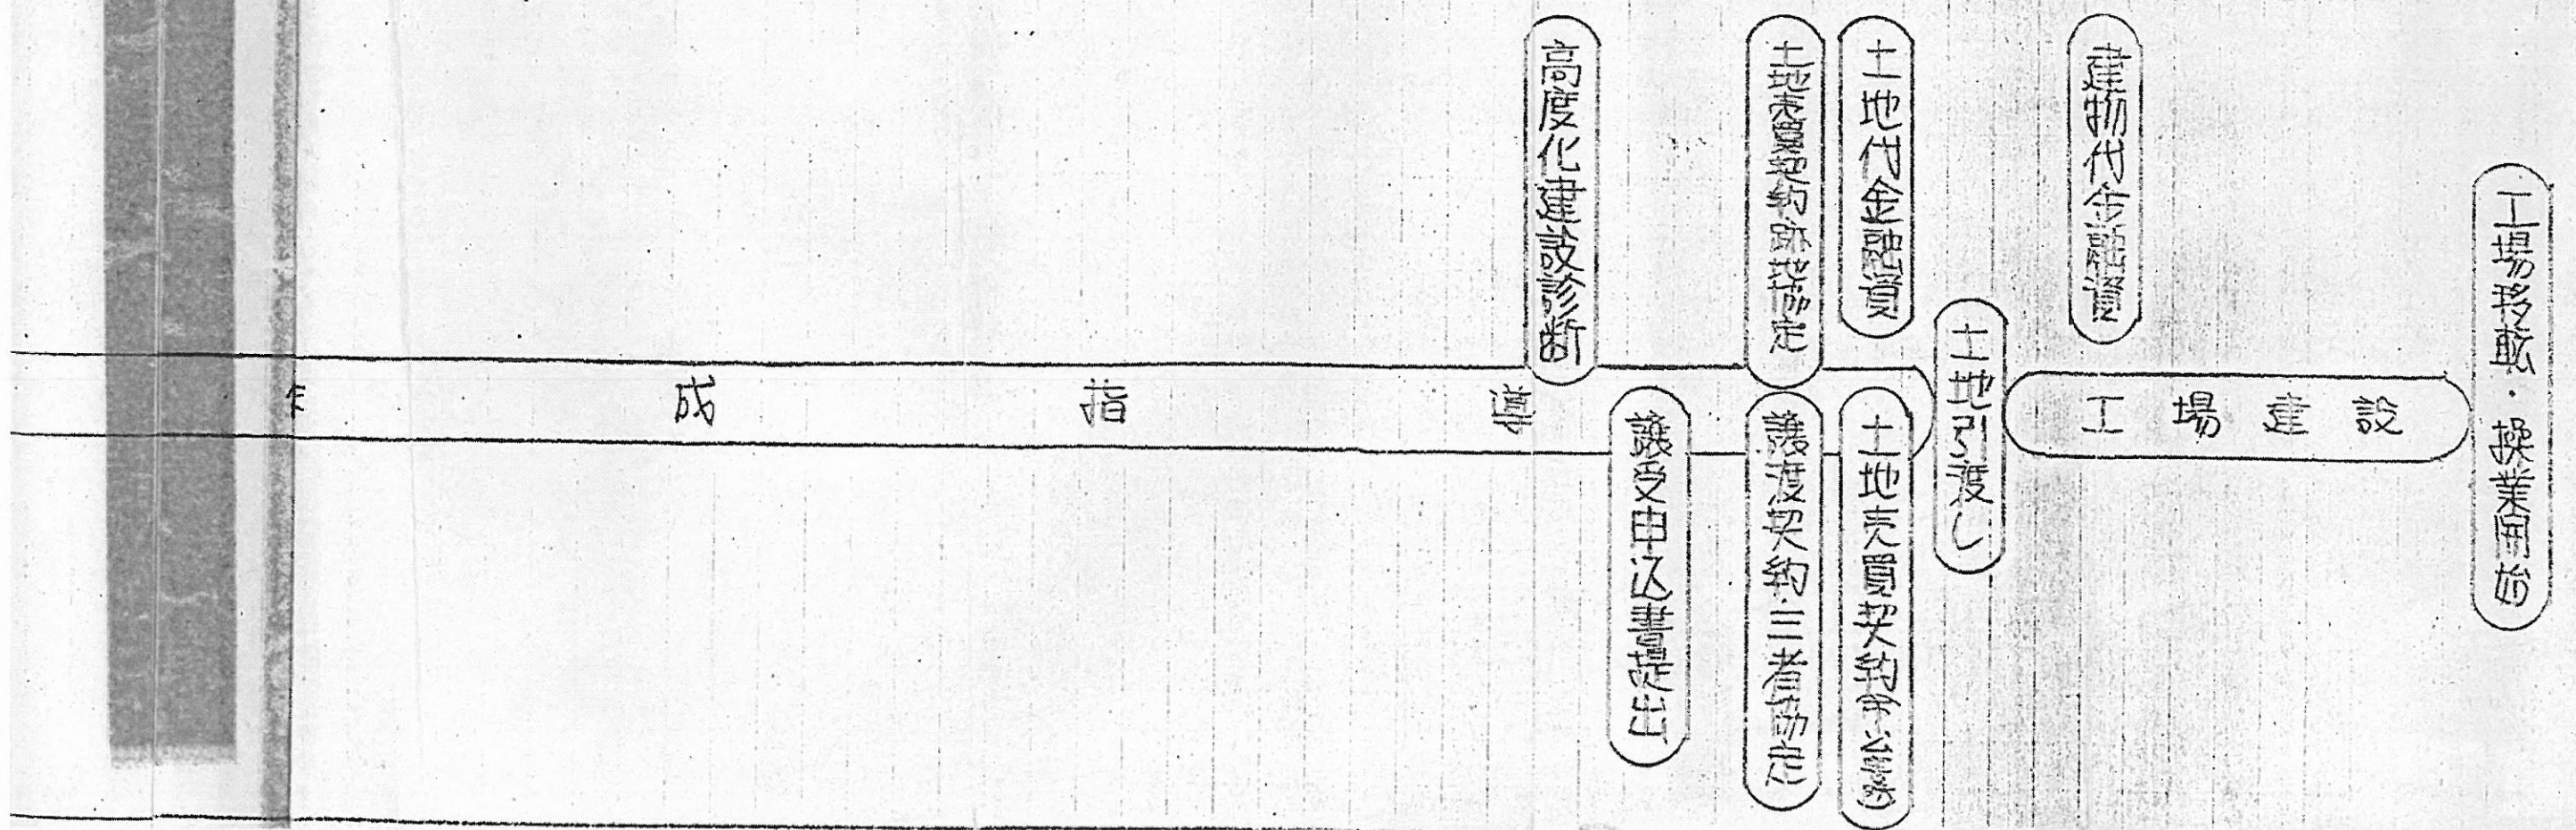 成指導
高度化建設診断
譲受申込書提出
土地売買契約跡地協定
譲渡契約・三者協定
土地代金融資
土地売買契約
土地引渡し
建物代金融資
工場建設
工場移転・操業開始